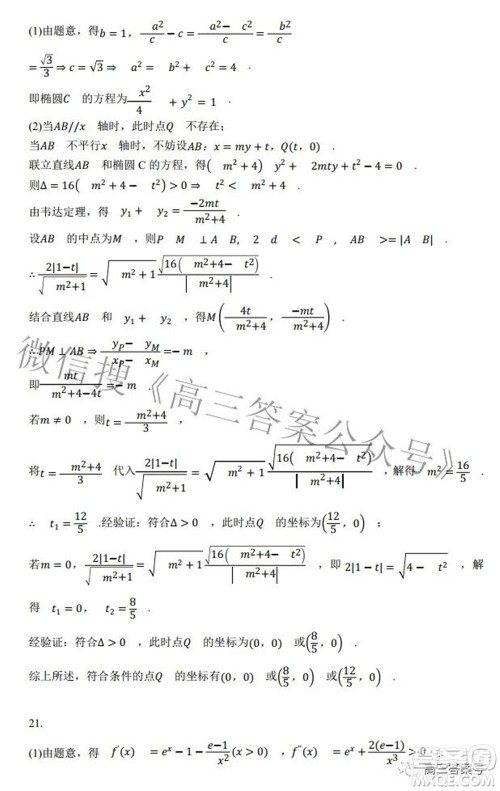 (1)由题意，得b = 1，a²/c − c = (a² − c²)/c = b²/c
= √3/3 ⇒ c = √3 ⇒ a² = b² + c² .
即椭圆C 的方程为x²/4 + y² = 1 .
(2)当AB//x 轴时，此时点Q 不存在；
当AB 不平行x 轴时，不妨设AB：x = my + t，Q(t, 0) .
联立直线AB 和椭圆 C 的方程，得( m² + 4) y² + 2mty + t² − 4 = 0 .
则Δ = 16( m² + 4 − t²) > 0 ⇒ t² < m² + 4 .
由韦达定理，得 y₁ + y₂ = −2mt/(m²+4) .
设AB 的中点为M ，则P M ⊥ A B, 2 d < P , AB >= | A B | .
∴ 2|1−t|/√(m²+1) = √(m² + 1) √(16( m²+4− t²))/| m²+4| .
结合直线AB 和 y₁ + y₂ ，得M(4t/(m²+4), −mt/(m²+4)) .
∴PM ⊥ AB ⇒ (y_P − y_M)/(x_P − x_M) = −m ，
即mt/(m²+4−4t) = −m .
若m ≠ 0 ，则t = (m²+4)/3 ，
将t = (m²+4)/3 代入2|1−t|/√(m²+1) = √(m² + 1) √(16( m²+4− t²))/| m²+4| ，解得 m² = 16/5 .
∴ t₁ = 12/5 .经验证：符合Δ > 0 ，此时点Q 的坐标为(12/5, 0) ；
若m = 0，2|1−t|/√(m²+1) = √(m² + 1) √(16( m²+4− t²))/| m²+4| ，即 2|1 − t| = √(4 − t²) ，解
得 t₁ = 0， t₂ = 8/5 .
经验证：符合Δ > 0 ，此时点Q 的坐标为(0, 0) 或(8/5, 0) .
综上所述，符合条件的点Q 的坐标有(0, 0) 或(8/5, 0) 或(12/5, 0) .
21.
(1)由题意，得 f′(x) = eˣ − 1 − (e−1)/x² (x > 0) ，f″(x) = eˣ + 2(e−1)/x³ > 0
微信搜《高三答案公众号》
高三答案号